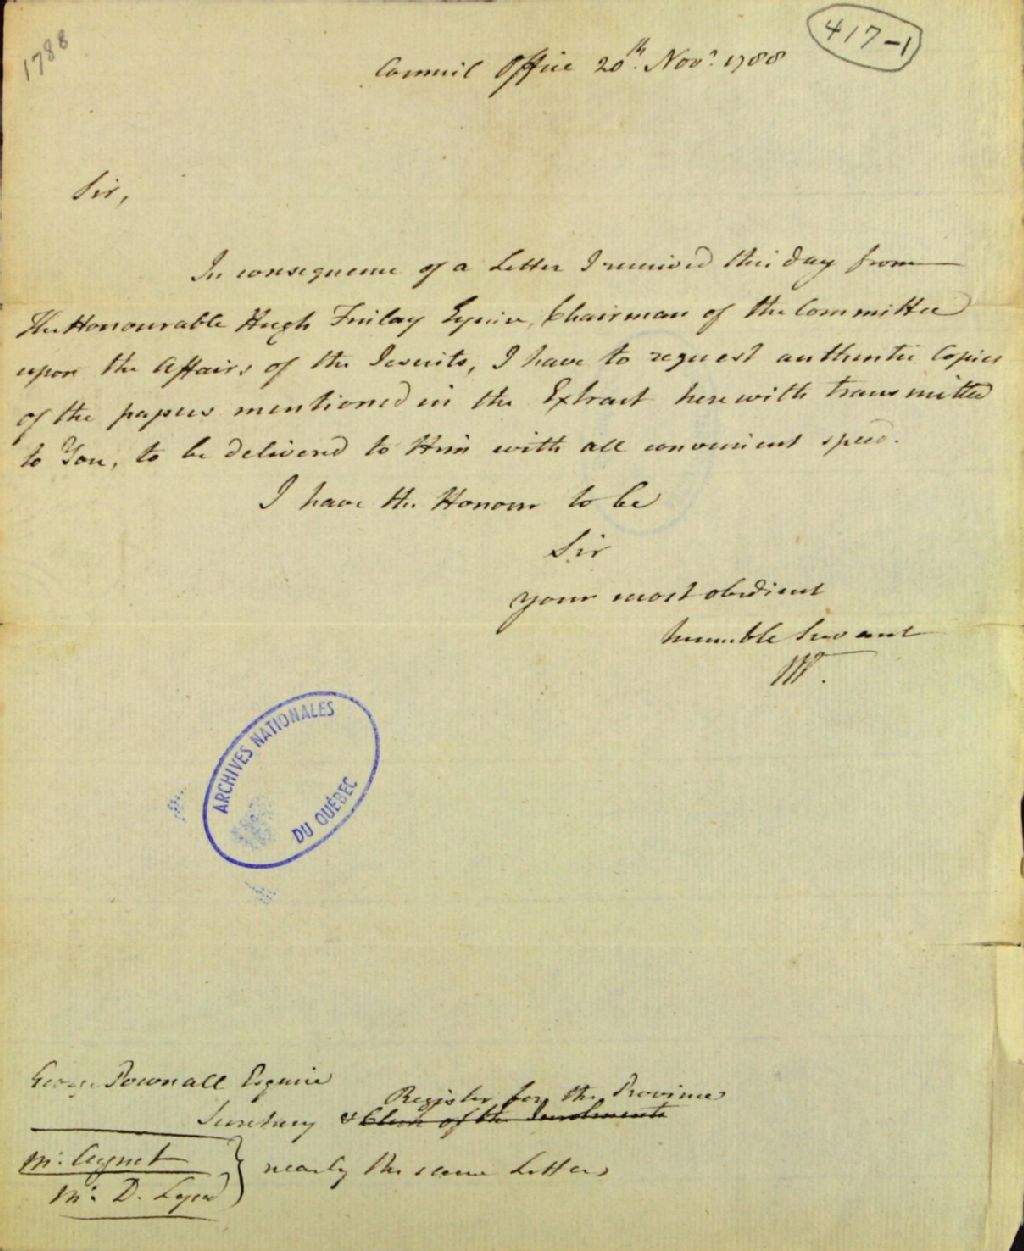 1788
417-1
Council Office 20th Novr. 1788
Sir,
In consequence of a Letter I received this day from
The Honourable Hugh Finlay Esquire, Chairman of the Committee
upon the Affairs of the Jesuits, I have to request authentic Copies
of the papers mentioned in the Extract herewith transmitted
to You, to be delivered to Him with all convenient speed.
I have the Honour to be
Sir
your most obedient
humble Servant
ARCHIVES NATIONALES
DU QUÉBEC
George Pownall Esquire
Register for the Province
Secretary & Clerk of the Inrolments
Mr.
Mr. D. Lynd
nearly the same Letter